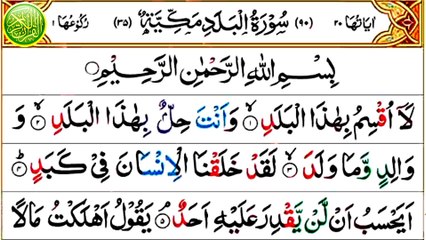 اٰيَاتُهَا ٢٠ (٩٠) سُوْرَةُ الْبَلَدِ مَكِّيَّةٌ (٣٥) رُكُوْعُهَا ١
بِسْمِ اللهِ الرَّحْمٰنِ الرَّحِيْمِ
لَاۤ اُقْسِمُ بِهٰذَا الْبَلَدِ ۙ﴿۱﴾ وَاَنْتَ حِلٌّۢ بِهٰذَا الْبَلَدِ ۙ﴿۲﴾ وَ
وَالِدٍ وَّمَا وَلَدَ ۙ﴿۳﴾ لَقَدْ خَلَقْنَا الْاِنْسَانَ فِيْ كَبَدٍ ؕ﴿۴﴾
اَيَحْسَبُ اَنْ لَّنْ يَّقْدِرَ عَلَيْهِ اَحَدٌ ۘ﴿۵﴾ يَقُوْلُ اَهْلَكْتُ مَالًا